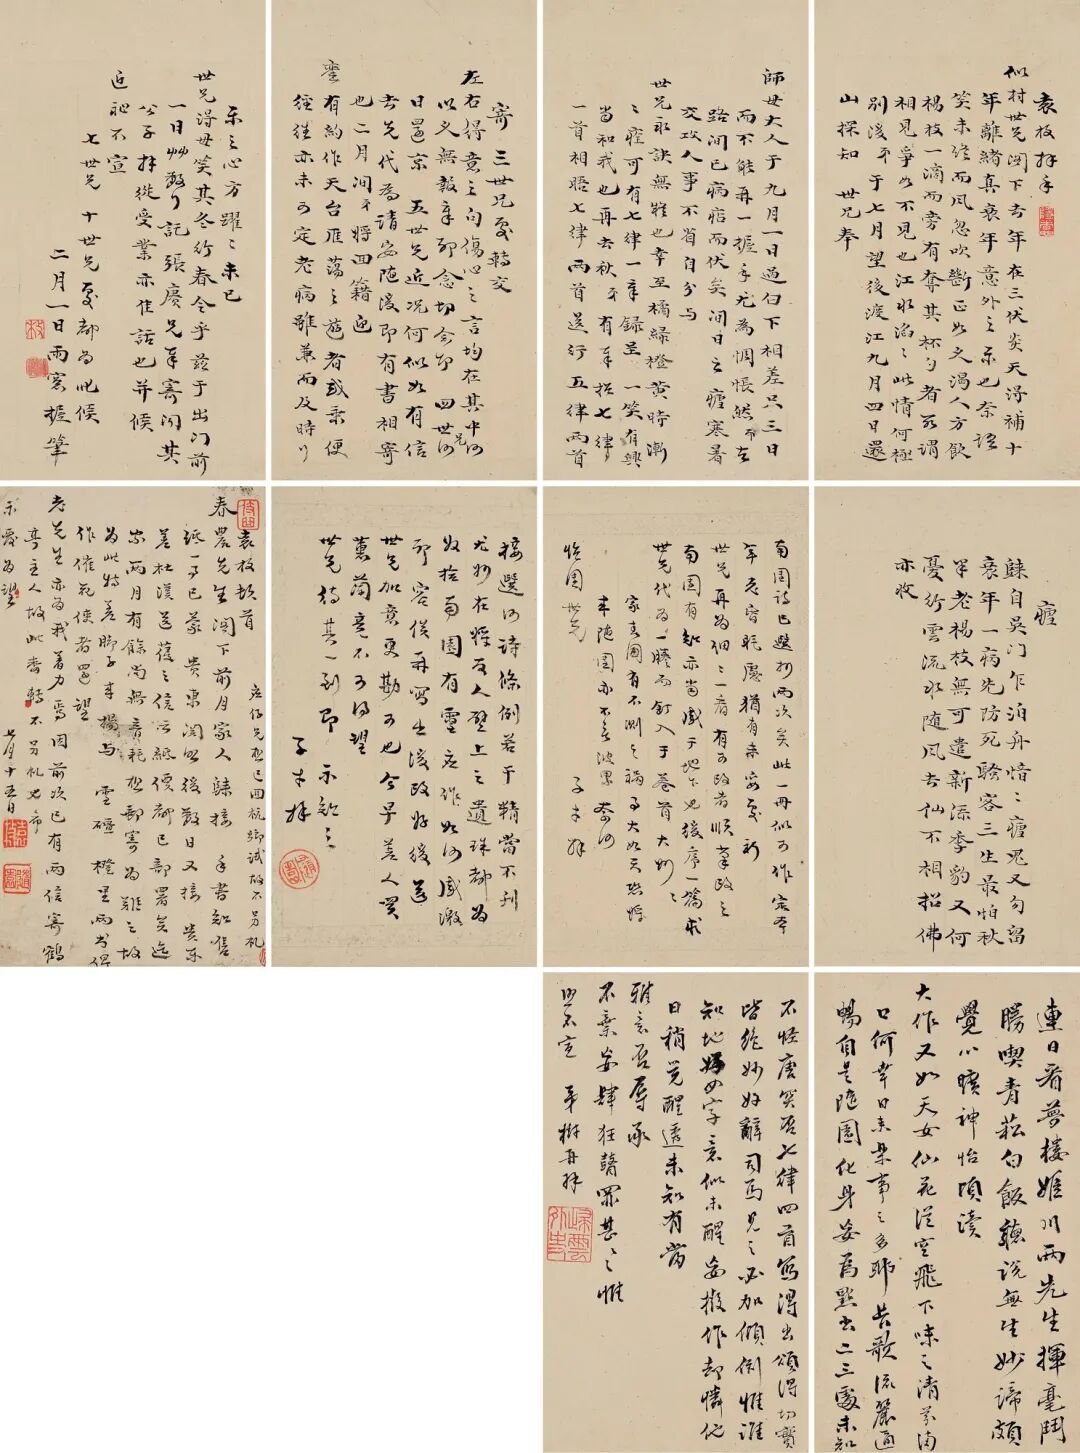 袁枚拜手
似村世兄閣下去年在三伏炎天得補十
年離緒真衰年意外之樂也奈語
笑未終而風忽吹斷正如久渴人方飲
楊枝一滴而旁有奪其杯勺者所謂
相見爭如不見也江水滔滔此情何極
別後于七月望後渡江九月四日還
山探知 世兄奉
師母大人于九月一日過白下相差只三日
而不能再一握手尤為惆悵然在
路間已病痁而伏矣間日之瘧寒暑
交攻人事不省自分與
世兄永訣無疑也幸至橘綠橙黃時漸
漸瘥可有七律一章錄呈一笑有興
當和我也再去秋有奉招七律
一首相晤七律兩首送行五律兩首
寄三世兄處轉交
左右得意之句傷心之言均在其中何
以久無報章耶念切念切四世兄
日還京 五世兄近況何似如有信
去先代為請安隨後即有書相寄
也二月間將回籍迎
鑾有約作天台雁蕩之遊者或乘便
徑往亦未可定老病雖兼而及時行
樂之心方躍躍未已
世兄得毋笑其冬行春令乎茲于出門前
一日草數行託張賡兄奉寄聞其
公子拜從受業亦佳話也并候
近祉不宣
七世兄 十世兄處都為叱候
二月一日雨窗握筆
瘧
歸自吳門乍泊舟愔愔瘧鬼又勾留
衰年一病先防死騷客三生最怕秋
早老楊枝無可遣新添季豹又何
憂行雲流水隨風去仙不相招佛
亦收
南園詩已選抄兩次矣此一冊似可作定本
年老昏眊慮猶有未安處祈
世兄再為細細一看有可改者順筆改之
南園有知亦當感于地下也後序一篇求
世兄代為一謄而釘入于卷首大妙大妙
家春圃有不測之禍事大如天恐將
來隨園亦不免波累奈何
子才拜
怡園世兄
接選詩條例若干精當不刊
尤妙在將友人壁上之遺珠都為
收拾南園有靈應作如何感激
耶容俟再寫出後政好後送
世兄加意更勘可也今早差人買
蕙蘭竟不可得望
世兄待其一到即示知之
子才拜
袁枚頓首
春農先生閣下前月家人歸接手書知售
紙一事已蒙貴東閣照後數日又接貴东
差杜漢送復之信云紙價都已部署矣迄
今兩月有餘尚無音耗想郵寄為難之故
為此特差腳子來揚與雪礓橙里兩書俱
作催花使者還望
老先生亦為我著力焉因前次已有兩信寄鶴
亭主人故此番轉不另札也希
示覆為望
七月十五日
應仔兄想已回杭鄉試故不另札
連日看夢樓姬川兩先生揮毫鬥
勝喫青菘白飯聽說無生妙諦頗
覺心曠神怡頃讀
大作又如天女仙花從空飛下味之清芬滿
口何幸日來樂事之多耶長歌流麗通
暢自是隨園化身妄為點出二三處未知
不怪唐突否七律四首寫得出頌得切實
皆絕妙好辭司馬見之必加傾倒惟誰
知地女字意似未醒妄擬作却憐他
日稍覺醒透未知有當
雅意否辱承
不棄妄肆狂瞽罪甚罪甚惟
照不宣 弟樹再拜